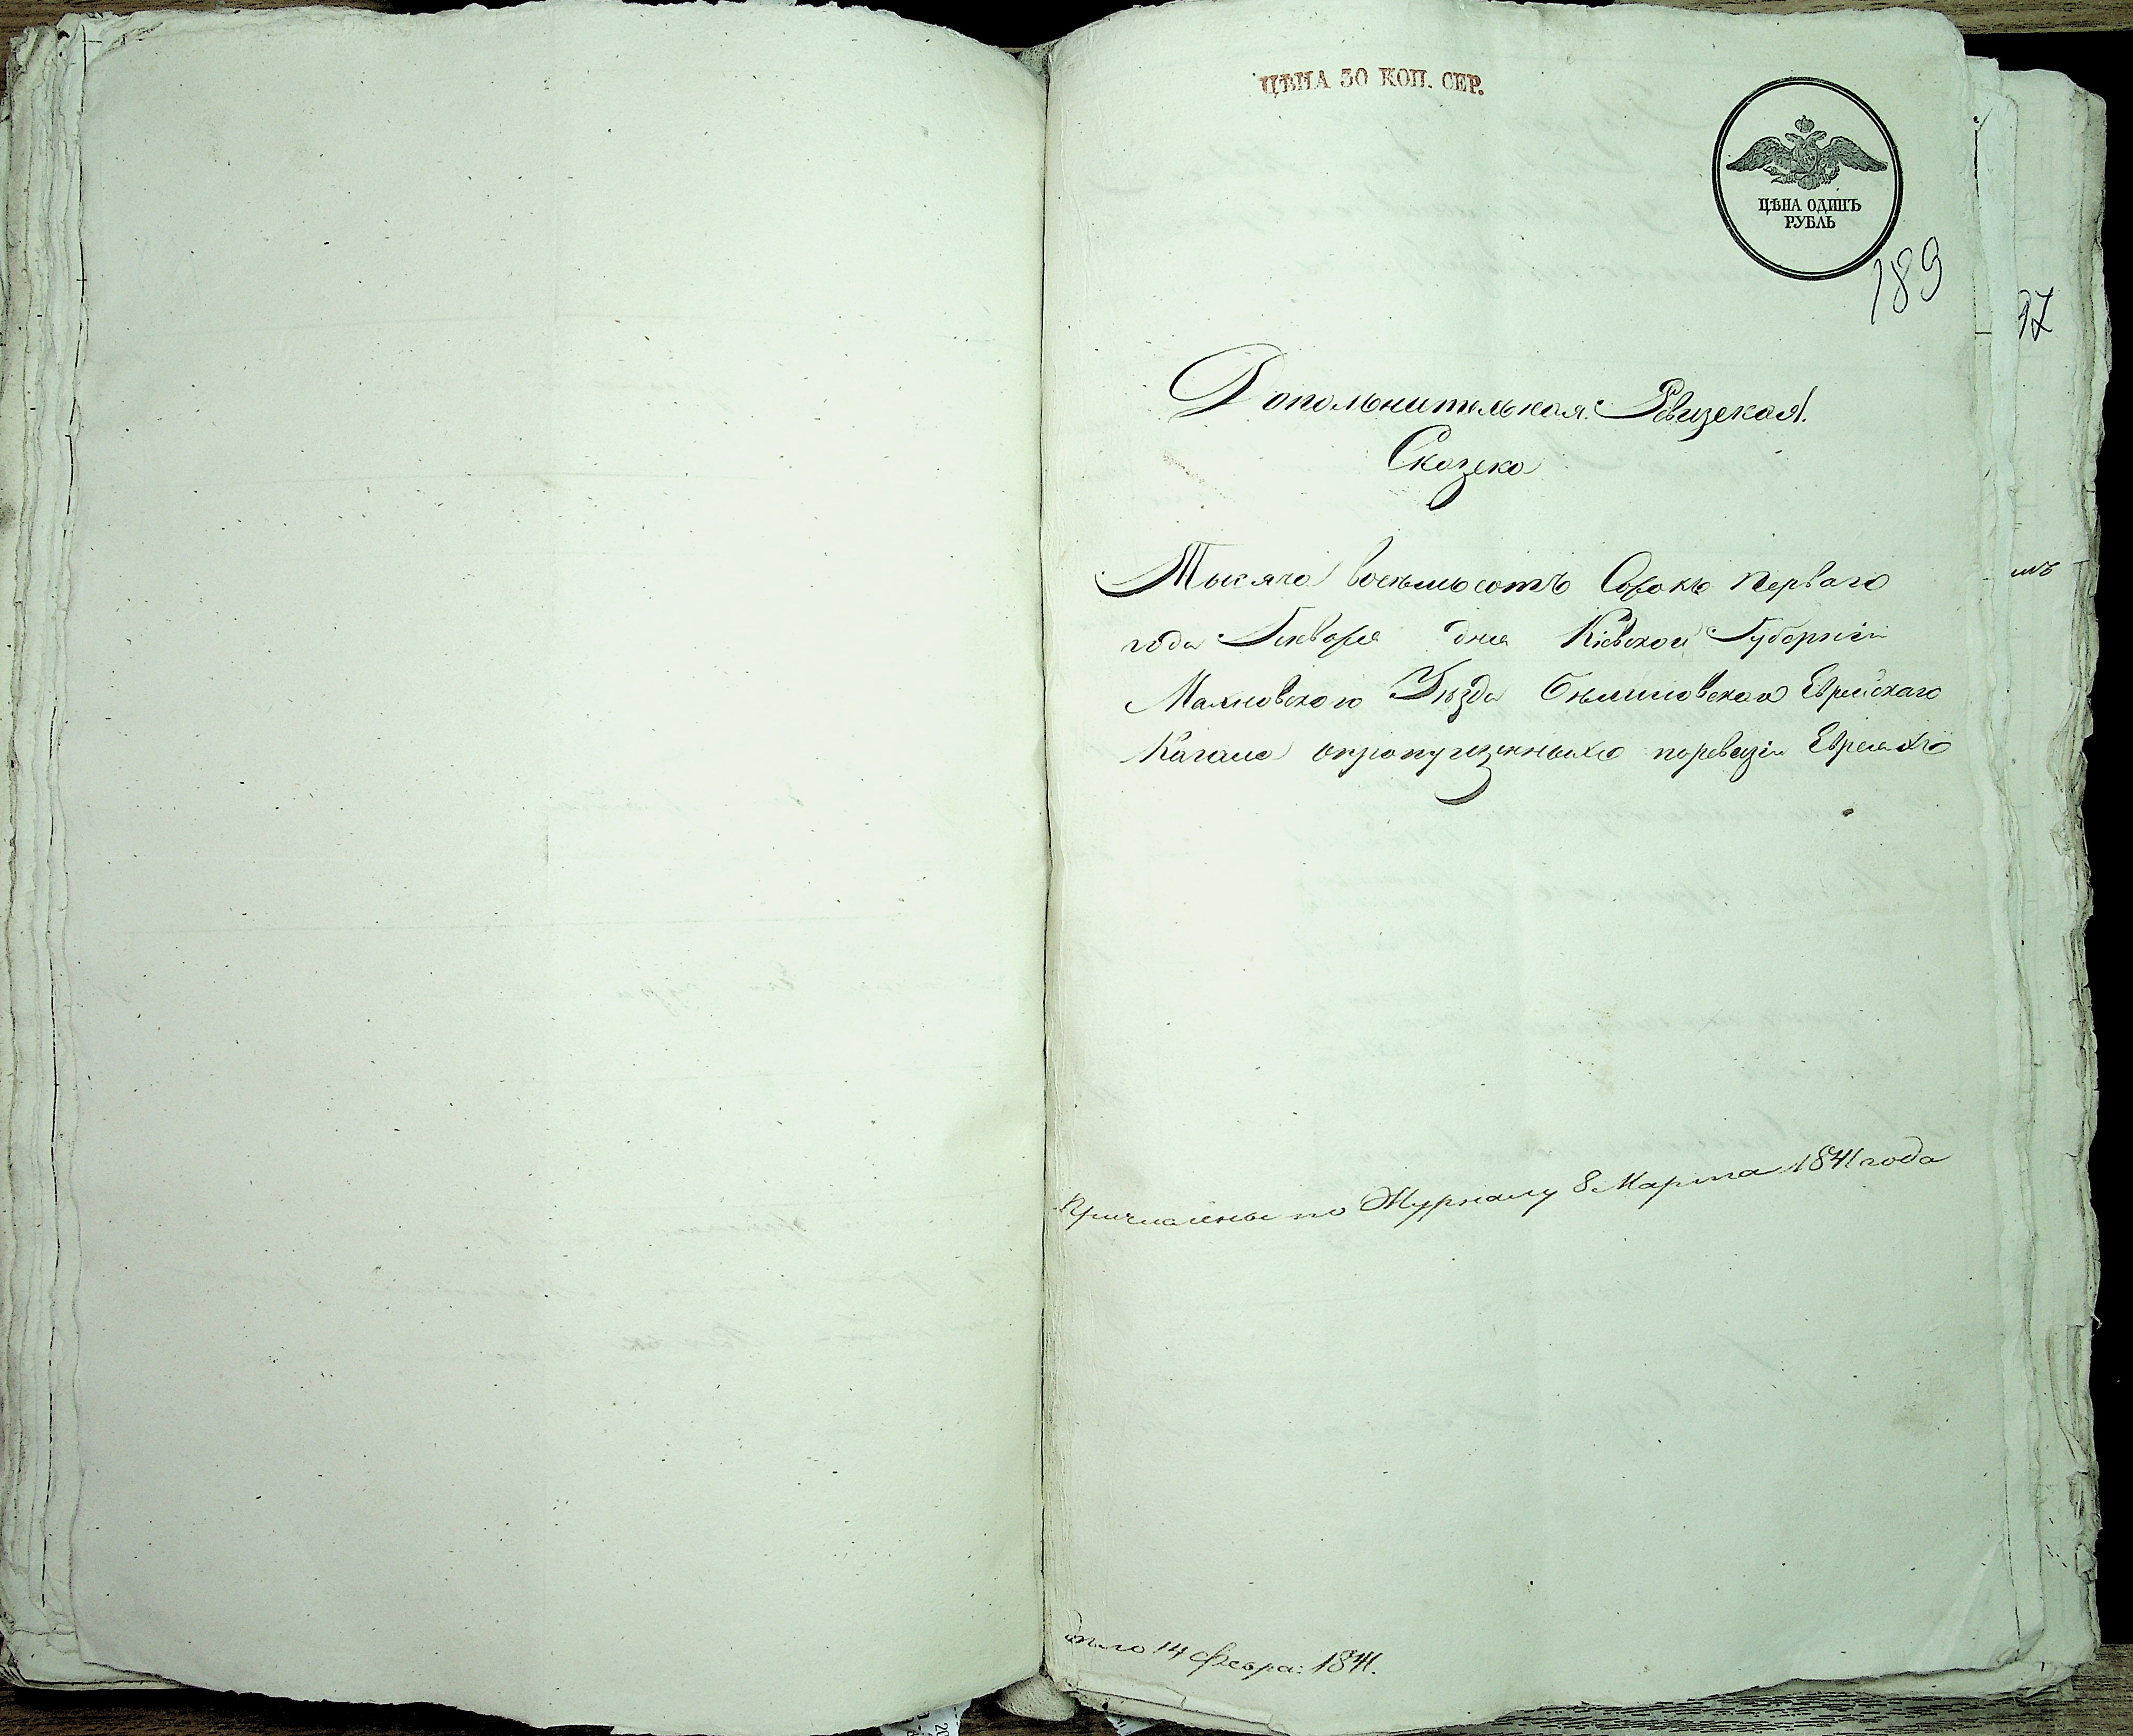 ЦѢНА 30 КОП. СЕР.
ЦѢНА ОДИНЪ
РУБЛЬ
189
97
Дополнительная Ревизская
Сказска
Тысяча восемьсотъ Сорокъ перваго
года Генваря дня Кіевской Губерніи
Махновского Уѣзда Бѣлиловскаго Еврейскаго
Кагала опропущенныхъ поревизіи Евреяхъ
мъ
Причислены по Журналу 8 Марта 1841 года
14 Февра: 1841.